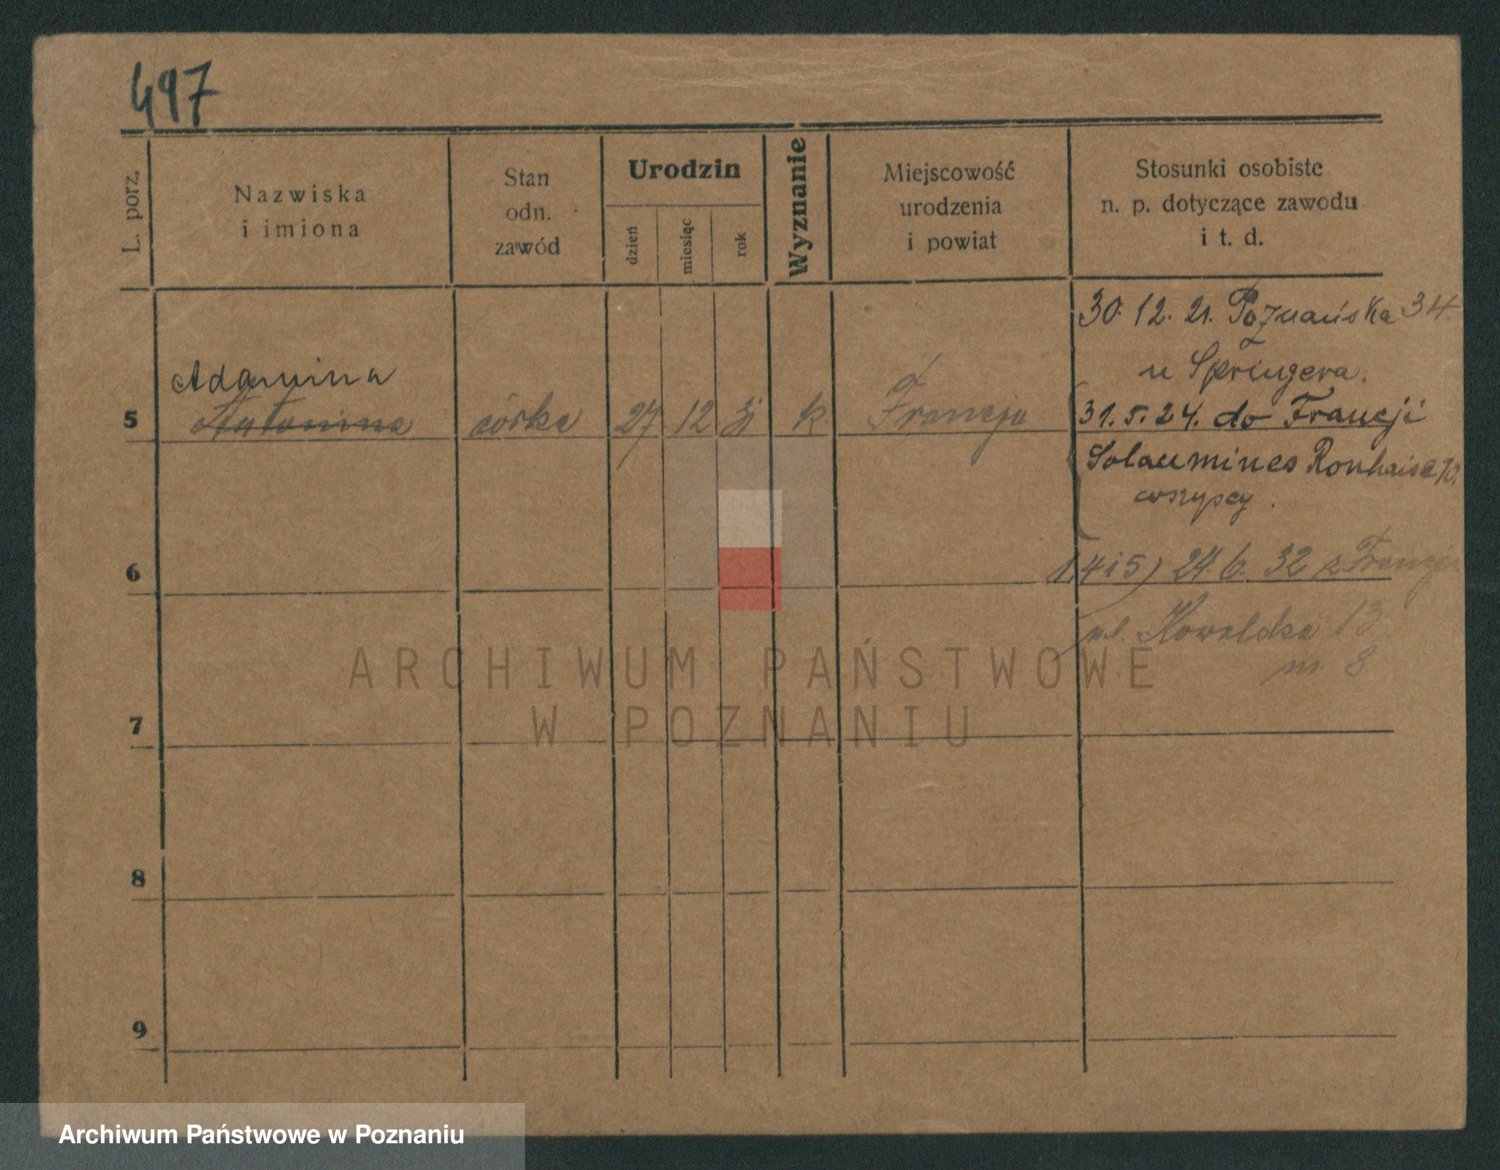 497
L. porz.
Nazwiska
i imiona
Stan
odn.
zawód
Urodzin
dzień
miesiąc
rok
Wyznanie
Miejscowość
urodzenia
i powiat
Stosunki osobiste
n. p. dotyczące zawodu
i t. d.
30. 12. 21. Poznańska 34
u Springera.
Adamina
5 Antonina córka 27 12 k. Francja
31. 5. 24. do Francji
Solaumines
wszyscy.
6
1, 4 i 5) 24. 6. 32 z Francji
ul. Kowalska 13
m. 8
7
8
9
ARCHIWUM PAŃSTWOWE
W POZNANIU
Archiwum Państwowe w Poznaniu